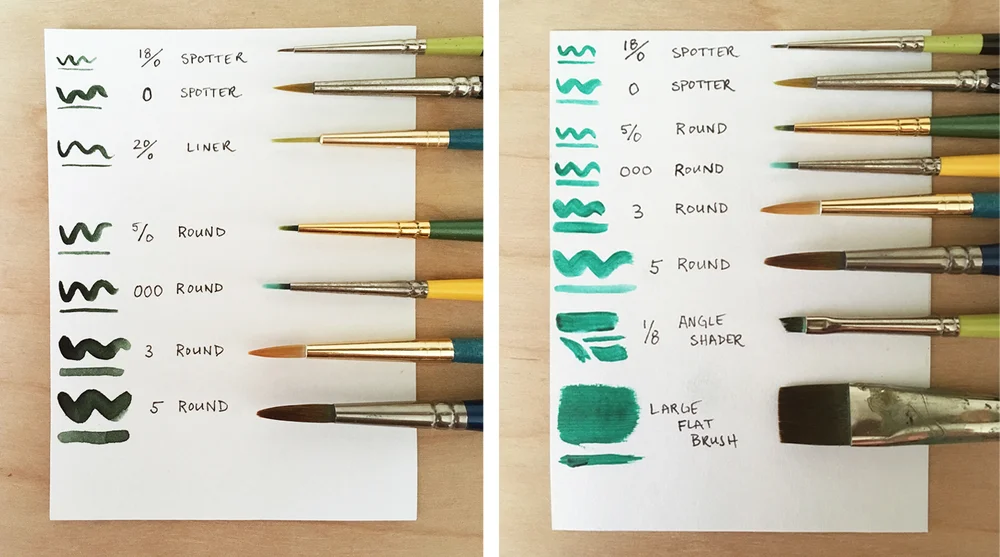 18/0 SPOTTER
0 SPOTTER
20/0 LINER
5/0 ROUND
000 ROUND
3 ROUND
5 ROUND
18/0 SPOTTER
0 SPOTTER
5/0 ROUND
000 ROUND
3 ROUND
5 ROUND
1/8 ANGLE
SHADER
LARGE
FLAT
BRUSH